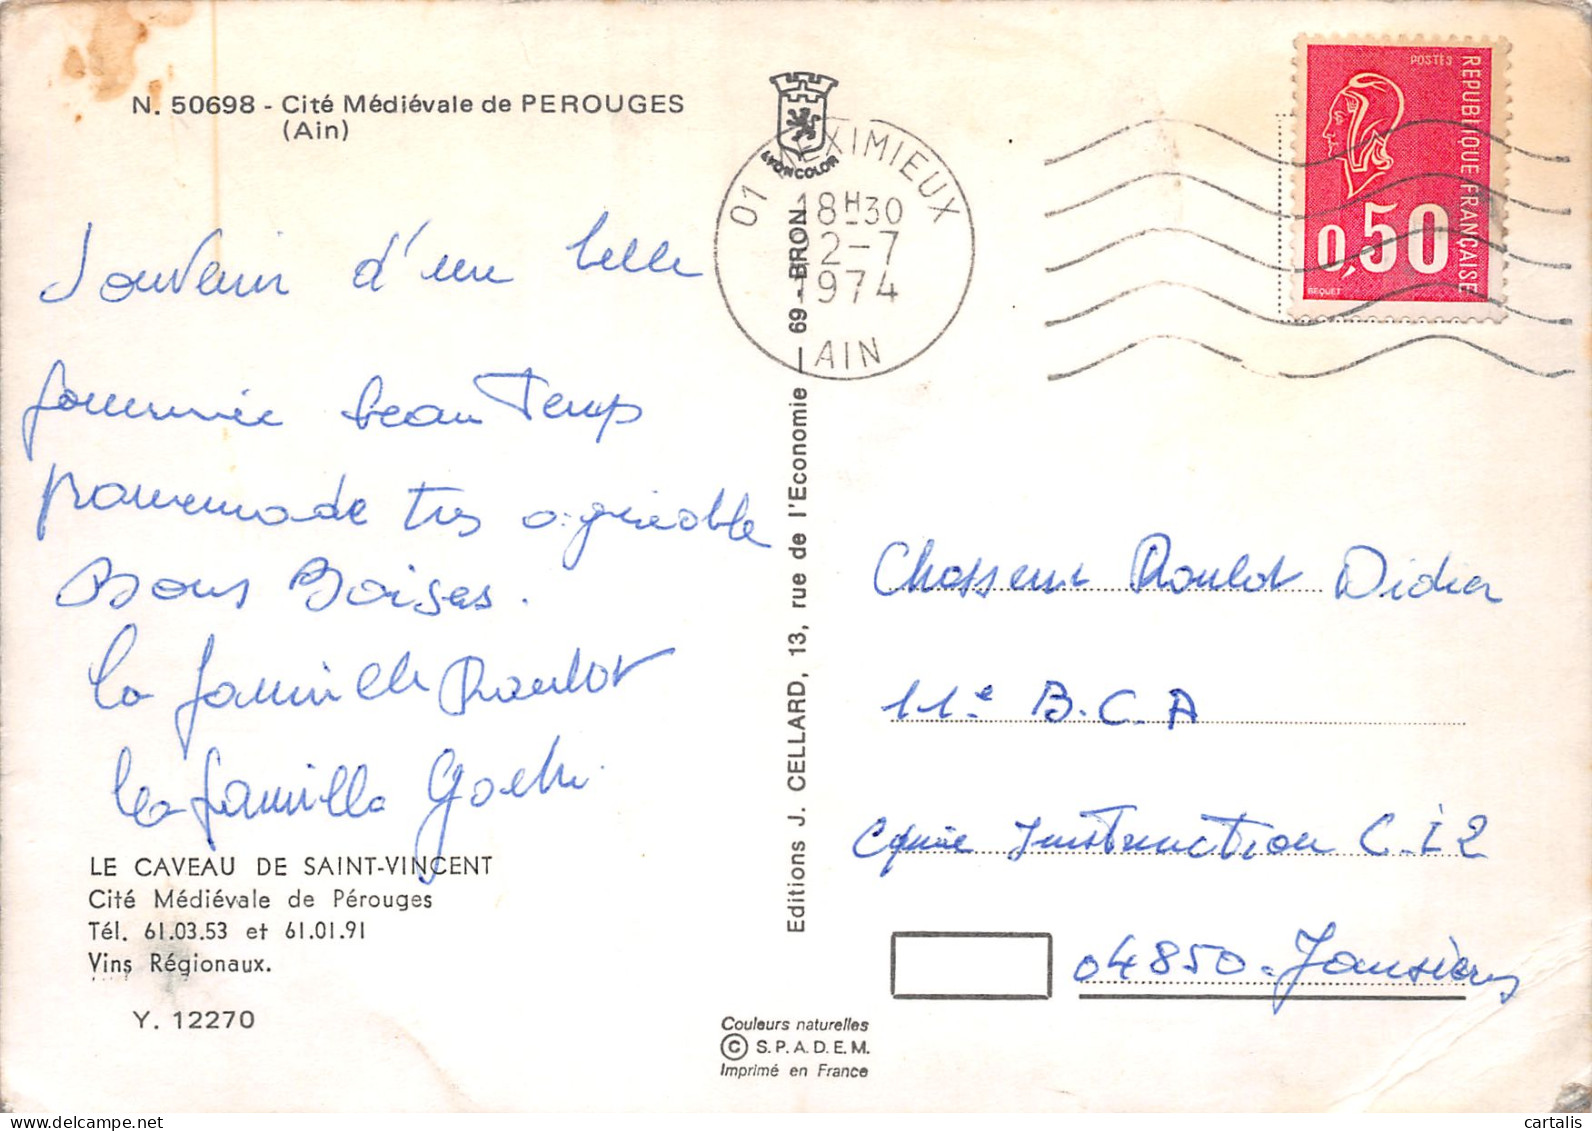 N. 50698 - Cité Médiévale de PEROUGES
(Ain)
Souvenir d'un belle
journée beau Temps
promenade très agréable
Bons Boises.
la famille Roulot
la famille
LE CAVEAU DE SAINT-VINCENT
Cité Médiévale de Pérouges
Tél. 61.03.53 et 61.01.91
Vins Régionaux.
Y. 12270
LYONCOLOR
01 MEXIMIEUX
18H30
12-7
1974
AIN
Editions J. CELLARD, 13, rue de l'Economie - 69 - BRON
Couleurs naturelles
© S.P.A.D.E.M.
Imprimé en France
POSTES
REPUBLIQUE FRANÇAISE
0,50
BEQUET
Chasseur Roulot Didier
11e B.C.A
Cpnie Instruction C.I2
04850. Jausiers
cartalis
delcampe.net